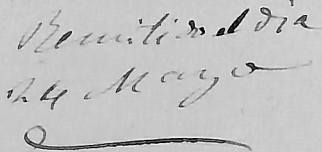 Remitido el dia
24 Mayo